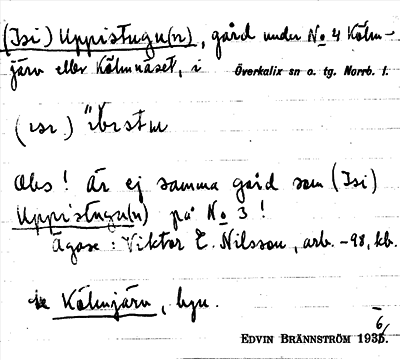 (Isi) Uppistugu(n), gård under No 4 Kölm-
järv eller Kölmnäset, i Överkalix sn o. tg. Norrb. l.
Obs! Är ej samma gård som (Isi)
Uppistugu(n) på No 3!
Ägare: Viktor E. Nilsson, arb. -98, kb.
Kölmjärv, byn.
EDVIN BRÄNNSTRÖM 1936.